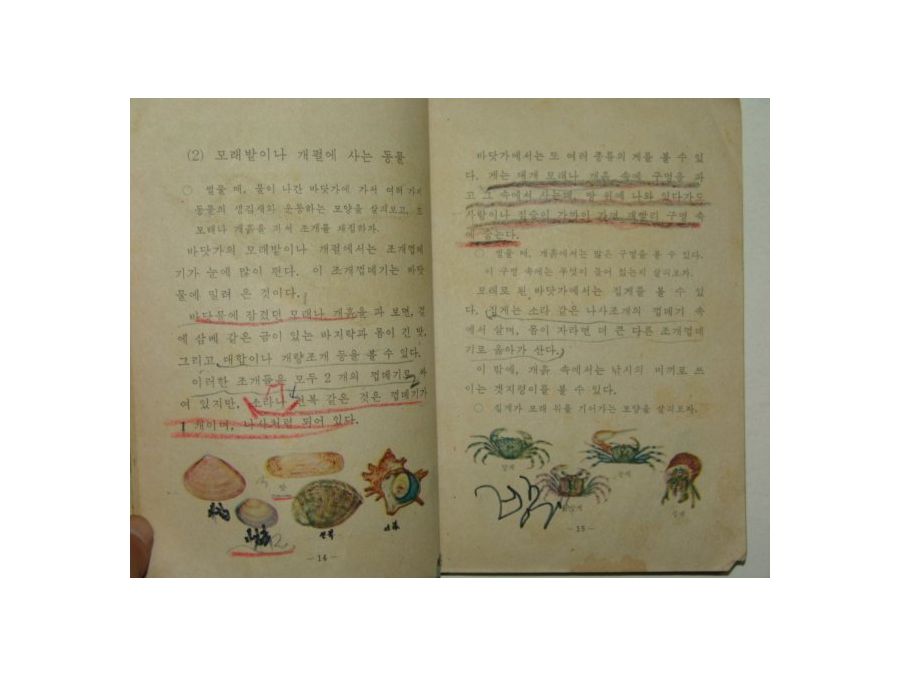 (2) 모래밭이나 개펄에 사는 동물
○ 썰물 때, 물이 나간 바닷가에 가서 여러 가지
동물의 생김새와 운동하는 모양을 살펴보고, 또
모래나 개흙을 파서 조개를 채집하자.
바닷가의 모래밭이나 개펄에서는 조개껍데
기가 눈에 많이 띈다. 이 조개껍데기는 바닷
물에 밀려 온 것이다.
바다물에 잠겼던 모래나 개흙을 파 보면, 겉
에 삼베 같은 금이 있는 바지락과 몸이 긴 맛,
그리고, 대합이나 개량조개 등을 볼 수 있다.
이러한 조개들은 모두 2 개의 껍데기로 싸
여 있지만, 소라나 전복 같은 것은 껍데기가
1 개이며, 나사처럼 되어 있다.
맛
전복
-14-
바닷가에서는 또 여러 종류의 게를 볼 수 있
다. 게는 대개 모래나 개흙 속에 구멍을 파
고 그 속에서 사는데, 땅 위에 나와 있다가도
사람이나 짐승이 가까이 가면 재빨리 구멍 속
에 숨는다.
○ 썰물 때, 개흙에서는 많은 구멍을 볼 수 있다.
이 구멍 속에는 무엇이 들어 있는지 살펴보자.
모래로 된 바닷가에서는 집게를 볼 수 있
다. 집게는 소라 같은 나사조개의 껍데기 속
에서 살며, 몸이 자라면 더 큰 다른 조개껍데
기로 옮아가 산다.
이 밖에, 개흙 속에서는 낚시의 미끼로 쓰
이는 갯지렁이를 볼 수 있다.
○ 집게가 모래 위를 기어가는 모양을 살펴보자.
집게
-15-